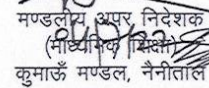 मण्डलीय अपर निदेशक
(माध्यमिक शिक्षा)
कुमाऊँ मण्डल, नैनीताल